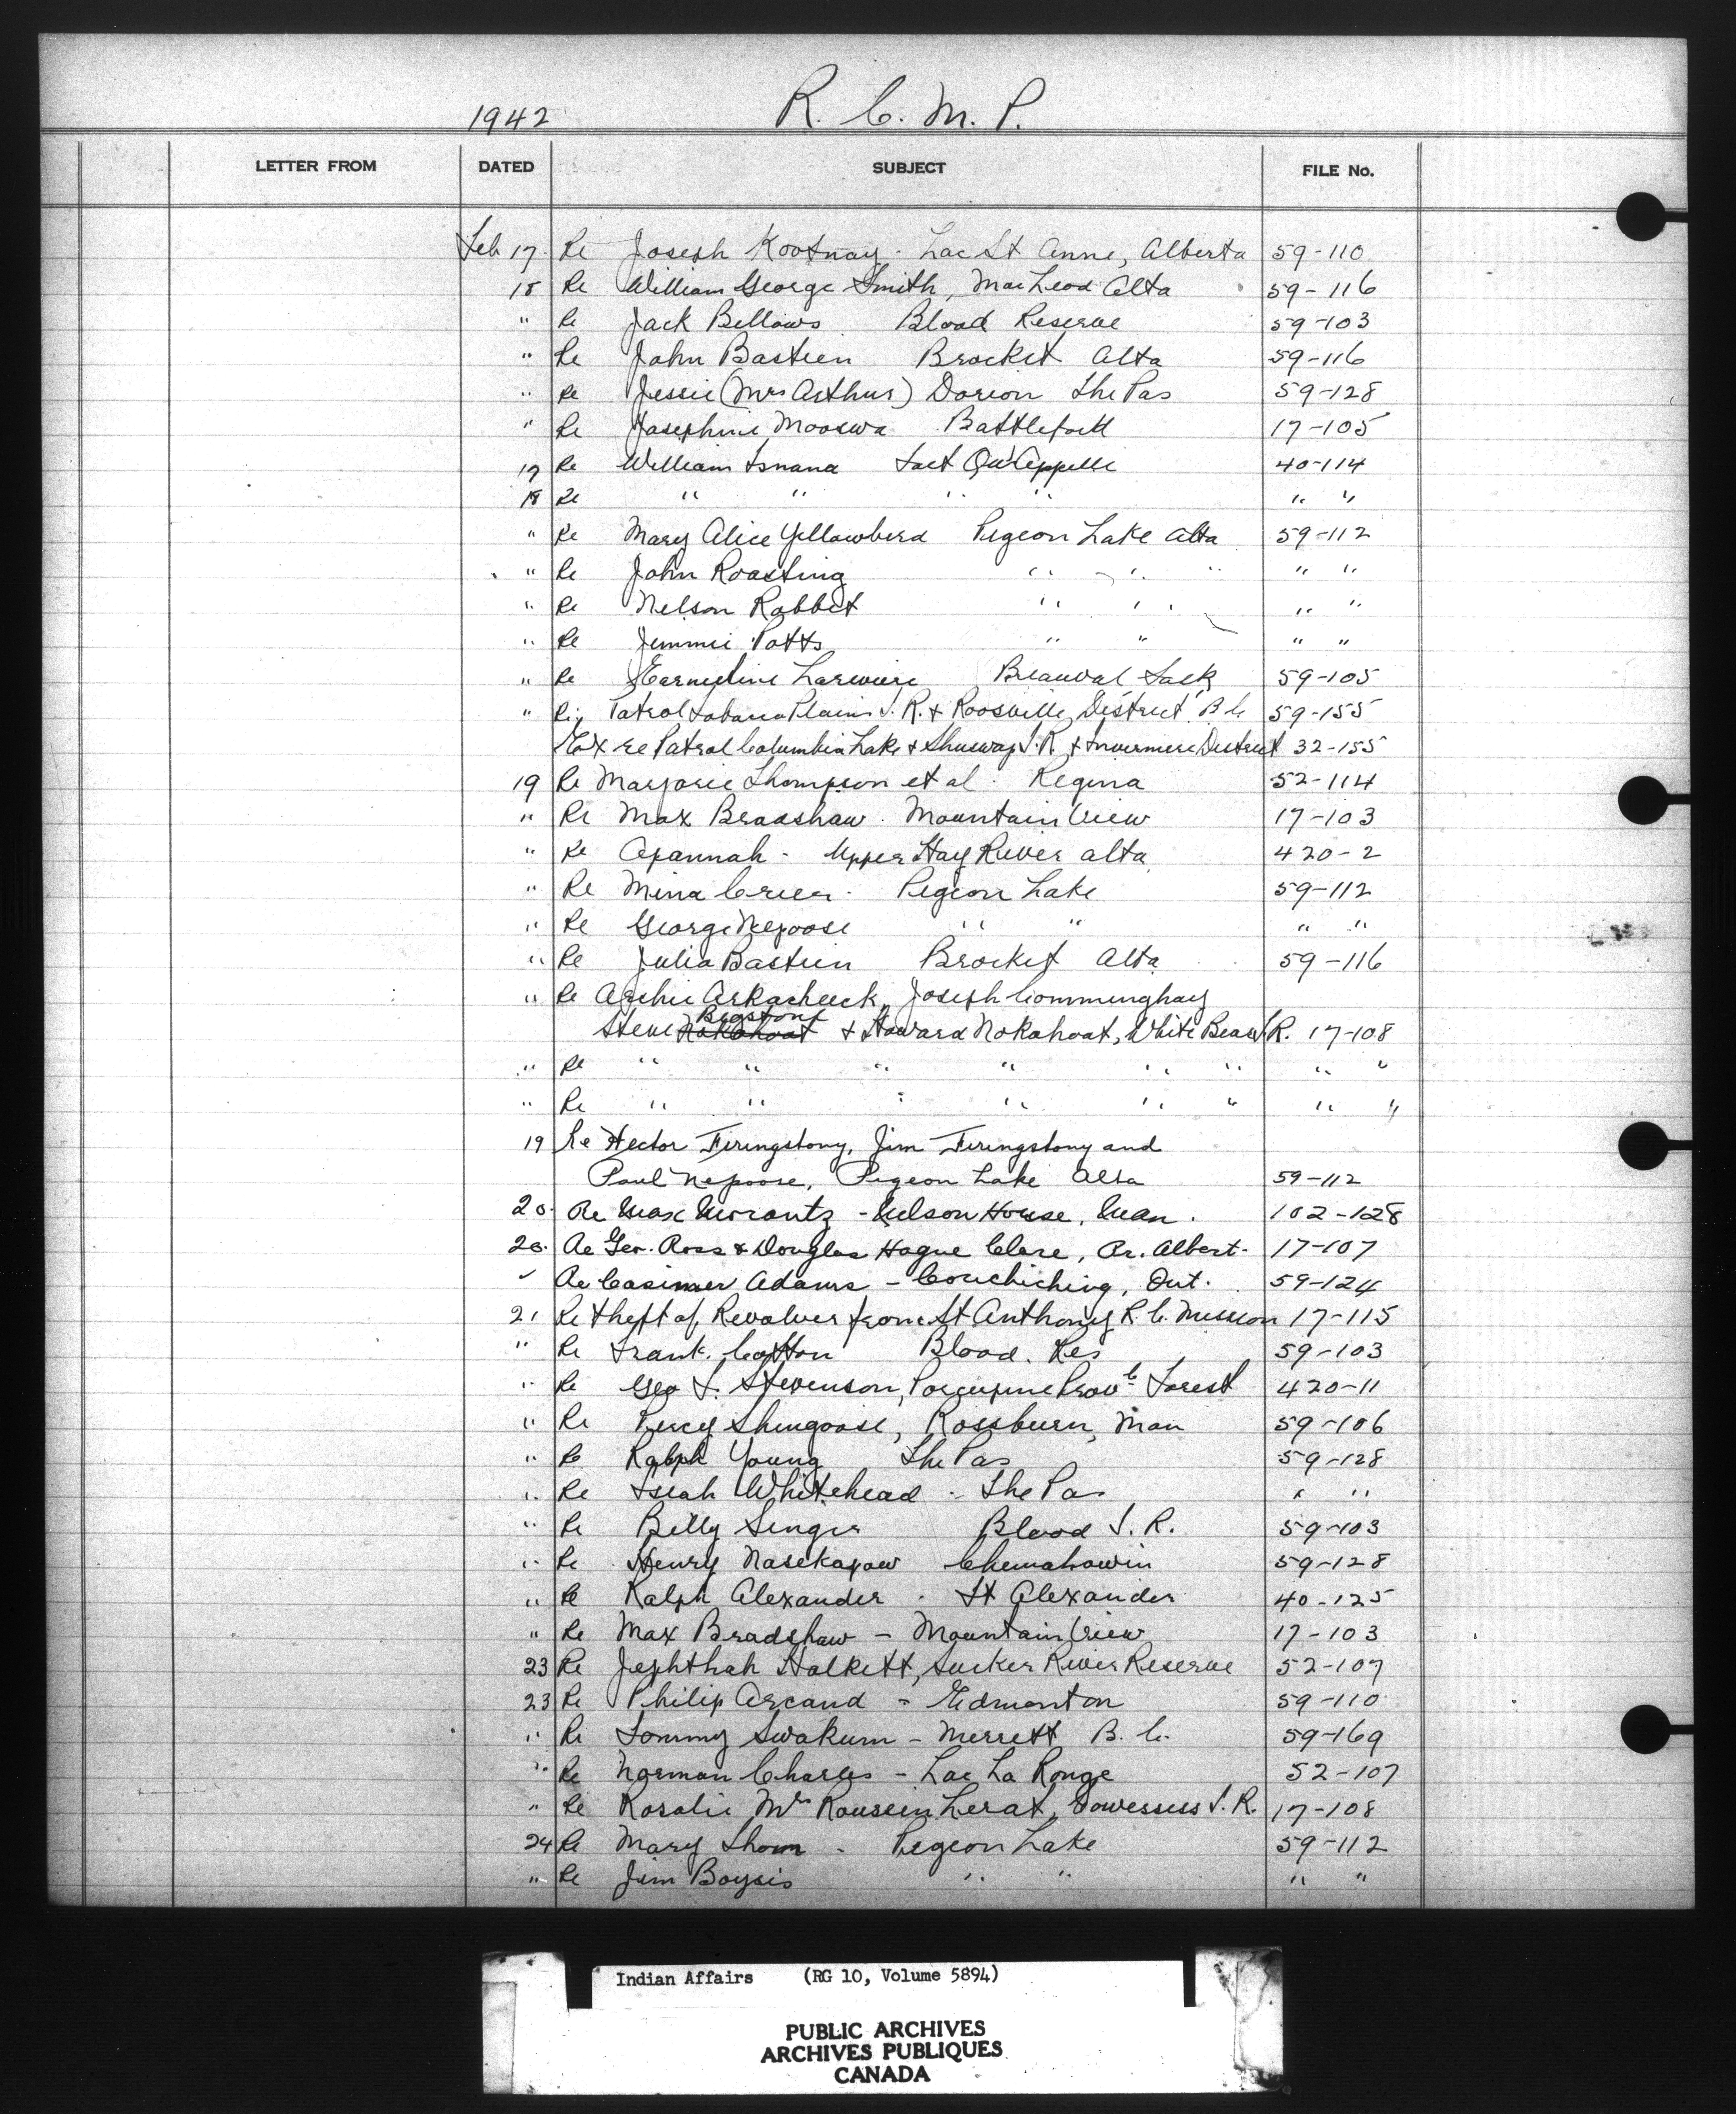 1942 R. C. M. P.
LETTER FROM DATED SUBJECT FILE No.
Feb 17 Re Joseph Kootnay - Lac St Anne, Alberta 59-110
18 Re William George Smith, MacLeod Alta 59-116
" Re Jack Bellows Blood Reserve 59-103
" Re John Bastien Brocket Alta 59-116
" Re Jessie (Mrs Arthur) Dorion The Pas 59-128
" Re Josephine Mooswa Battleford 17-105
17 Re William Isnana Fort Qu'Appelle 40-114
18 Re " " " " " "
" Re Mary Alice Yellowbird Pigeon Lake Alta 59-112
" Re John Roasting " " " " "
" Re Nelson Rabbit " " " "
" Re Jimmie Potts " " " "
" Re Lariviere Beauval Sask 59-105
" Re Patrol Tobacco Plains I. R. & Roosville District B C 59-155
Ex re Patrol Columbia Lake & Shuswap I. R. & Invermere District 32-155
19 Re Marjorie Thompson et al - Regina 52-114
" Re Max Bradshaw - Mountain View 17-103
" Re Apannah - Upper Hay River Alta 420-2
" Re Mina Crier - Pigeon Lake 59-112
" Re George Nepoose " " " "
" Re Julia Bastien Brocket Alta 59-116
" Re Archie Joseph
Bigstone
Steve Nokohoat & Howard Nokohoat, White Bear I R. 17-108
" Re " " " " " " " "
" Re " " " " " " " "
19 Re Hector Firingstony, Jim Firingstony and
Paul Nepoose, Pigeon Lake Alta 59-112
20. Re Max Morantz - Nelson House, Man. 102-128
20. Re Geo. Ross & Douglas Hague Clare, Pr. Albert - 17-107
" Re Casimer Adams - Couchiching, Ont. 59-124
21 Re theft of Revolver from St Anthony R. C. Mission 17-115
" Re Frank Cotton Blood Res 59-103
" Re Geo F. Stevenson, Porcupine Prov'l Forest 420-11
" Re Percy Shingoose, Rossburn, Man 59-106
" Re Ralph Young The Pas 59-128
" Re Isiah Whitehead - The Pas " "
" Re Billy Singer Blood I. R. 59-103
" Re Henry Nasekapow Chemahawin 59-128
" Re Ralph Alexander - Ft Alexander 40-125
" Re Max Bradshaw - Mountain View 17-103
23 Re Jephthah Halkett, Sucker River Reserve 52-107
23 Re Philip Arcand - Edmonton 59-110
" Re Tommy Swakum - Merrett B. C. 59-169
" Re Norman Charles - Lac La Ronge 52-107
" Re Rosalie Mrs Lerat, Cowessess I. R. 17-108
24 Re Mary Thom - Pigeon Lake 59-112
" Re Jim Boysis " " " "
Indian Affairs (RG 10, Volume 5894)
PUBLIC ARCHIVES
ARCHIVES PUBLIQUES
CANADA